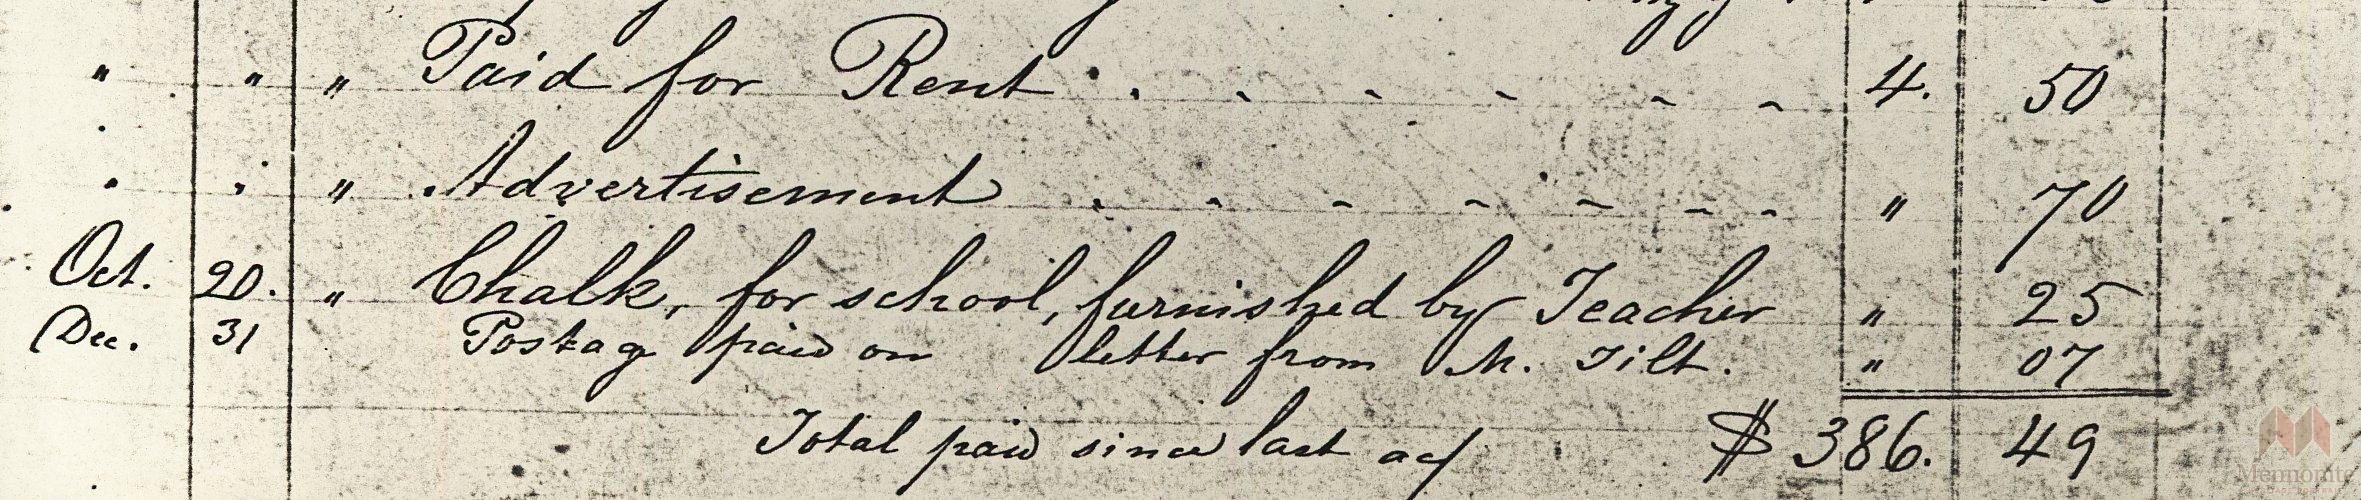 " " " Paid for Rent . - - - - - 4. 50
" " " Advertisement - - - - - - - " 70
Oct. 20. " Chalk, for school, furnished by Teacher " 25
Dec. 31 Postag paid on letter from M. Tilt. " 07
Total paid since last ac/ $ 386. 49
Mennonite